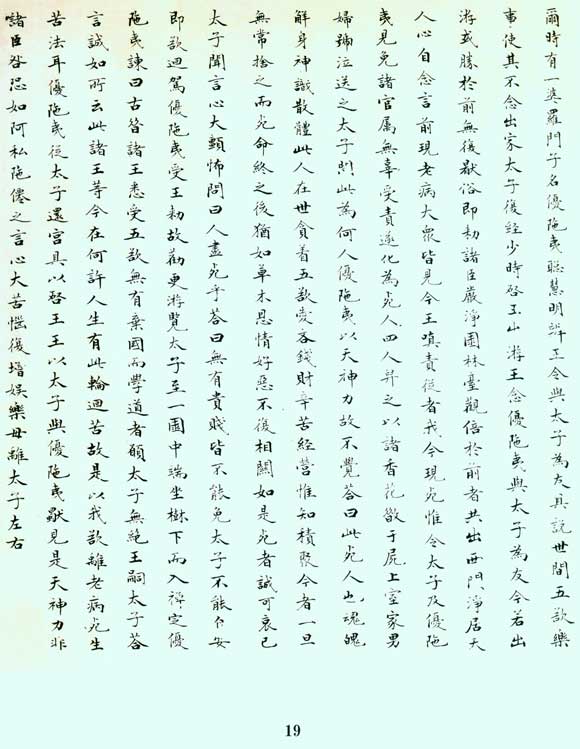 爾時有一婆羅門子名優陁夷聡慧明辯王令與太子為友具說世間五欲樂
事使其不念出家太子後經少時啓王出游王念優陁夷與太子為友今若出
游或勝於前無復猒俗即勅諸臣嚴淨園林臺觀倍於前者共出西門淨居天
人心自念言前現老病大衆皆見令王嗔責從者我今現死惟令太子及優陁
夷見免諸官屬無辜受責遂化為死人四人舁之以諸香花散于屍上室家男
婦號泣送之太子問此為何人優陁夷以天神力故不覺荅曰此死人也魂魄
解身神識散體此人在世貪着五欲愛吝錢財辛苦經營惟知積聚今者一旦
無常捨之而死命終之後猶如草木恩情好惡不復相關如是死者誠可哀已
太子聞言心大顫怖問曰人盡死乎荅曰無有貴賤皆不能免太子不能自安
即欲迴駕優陁夷受王勅故勸更游覽太子至一園中端坐樹下而入禪定優
陁夷諫曰古昔諸王悉受五欲無有棄國而學道者願太子無絶王嗣太子荅
言誠如所云此諸王等今在何許人生有此輪迴苦故是以我欲離老病死生
苦法耳優陁夷從太子還宮具以啓王王以太子與優陁夷獨見是天神力非
諸臣咎思如阿私陁僊之言心大苦惱復增娛樂毋離太子左右
19